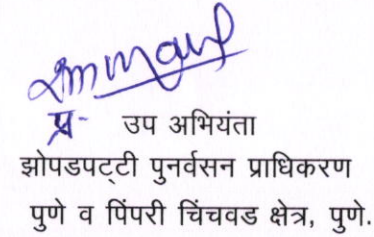 प्र- उप अभियंता
झोपडपट्टी पुनर्वसन प्राधिकरण
पुणे व पिंपरी चिंचवड क्षेत्र, पुणे.